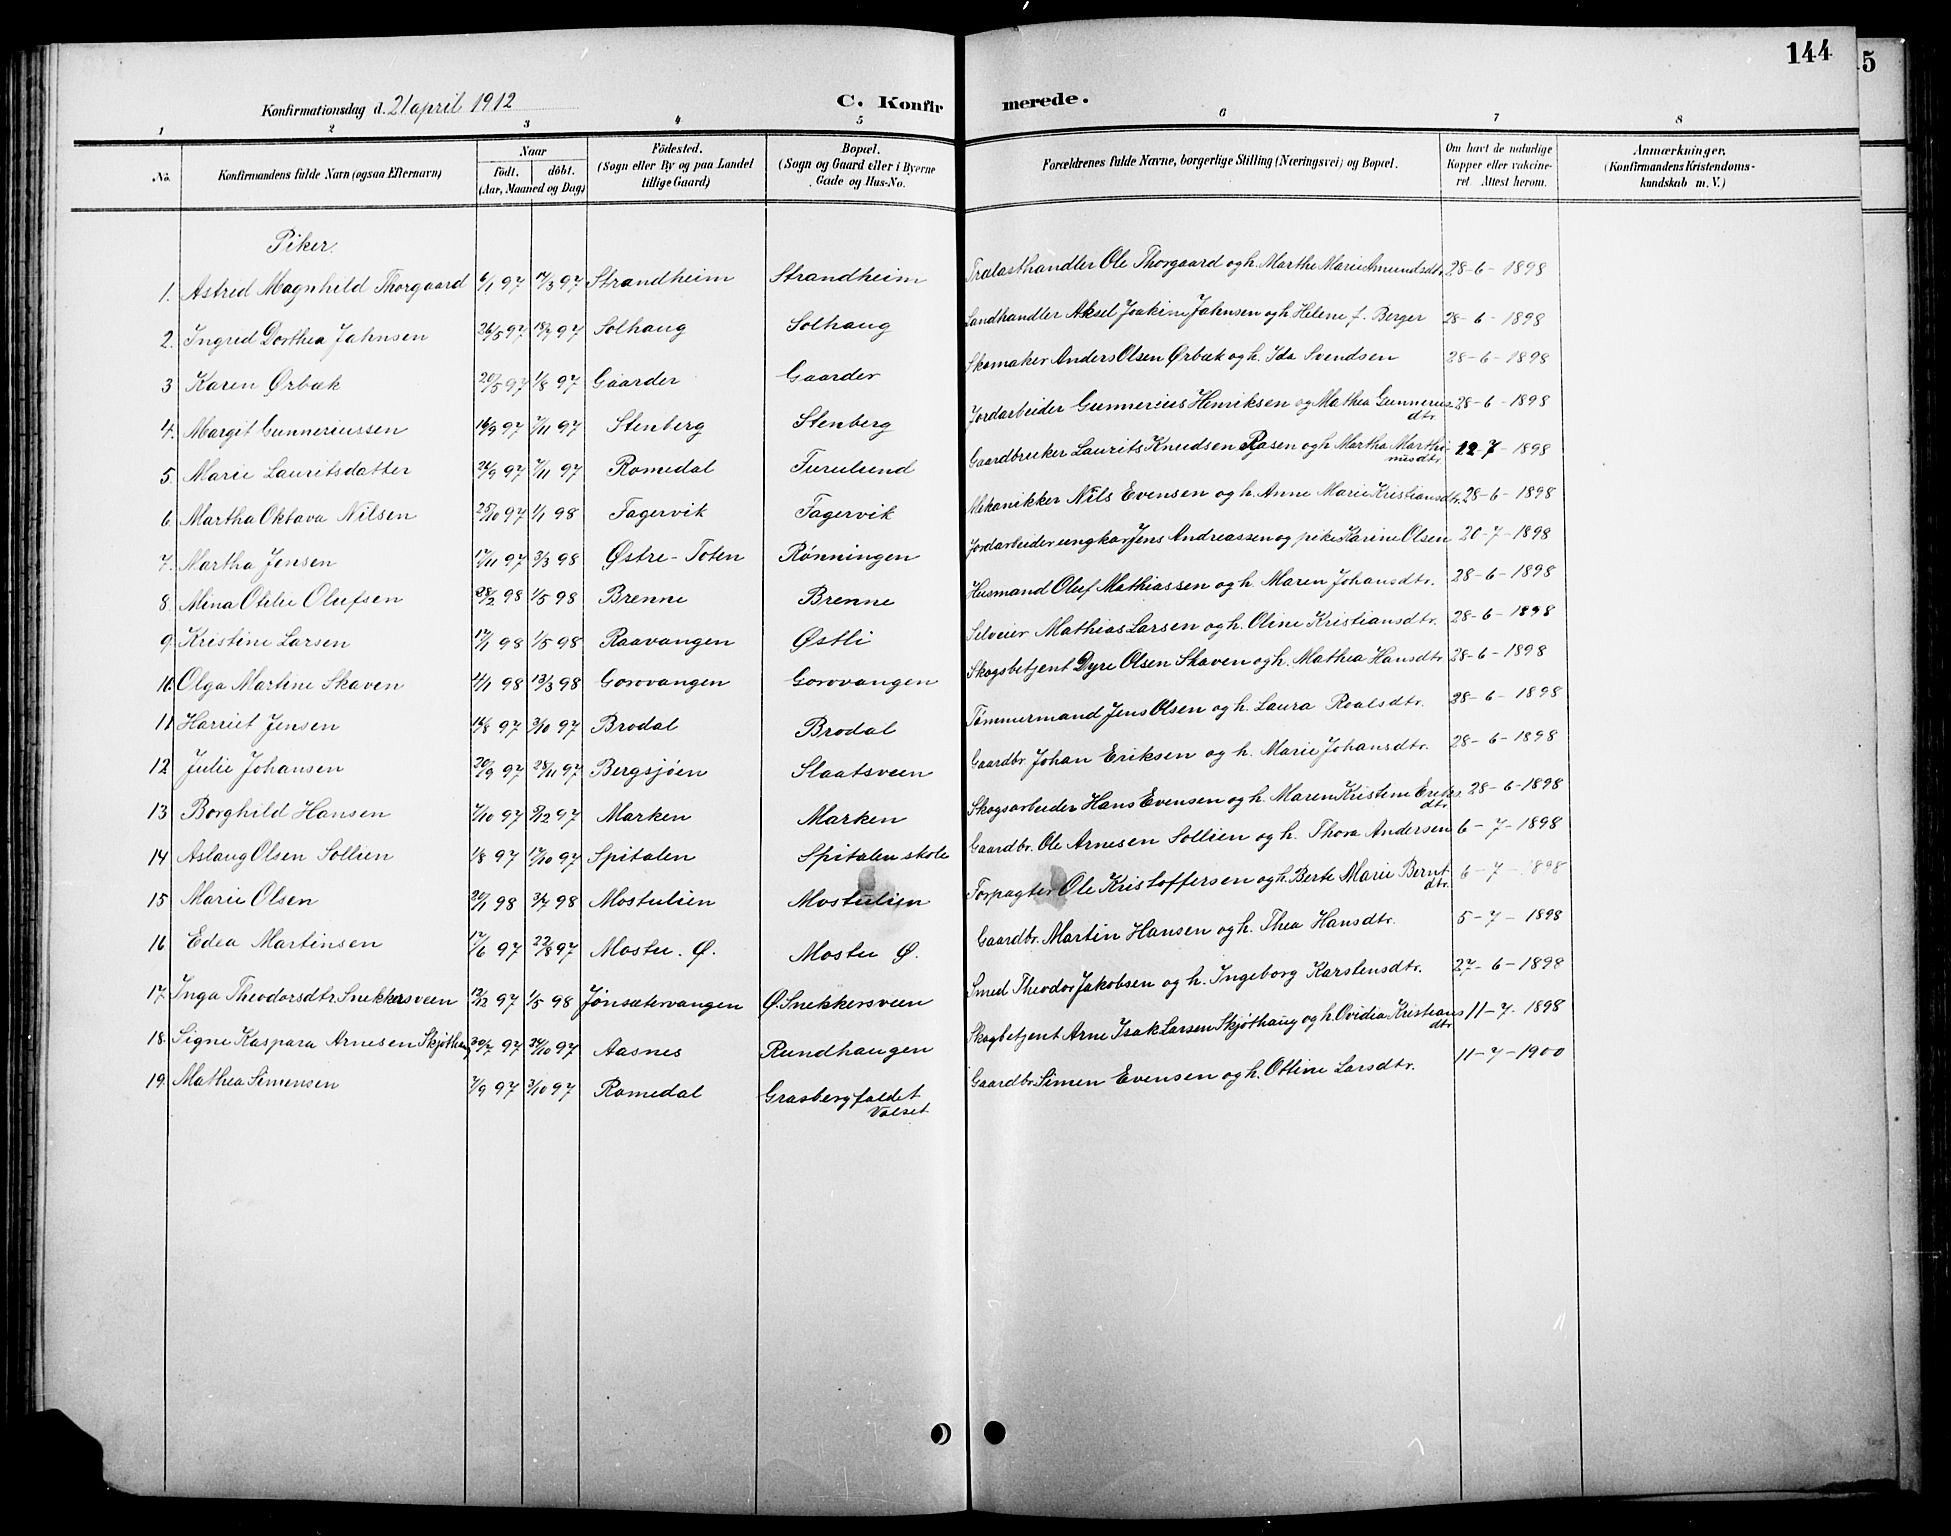 144
5
Konfirmationsdag d. 21 april 1912
C. Konfirmerede.
1 2 3 4 5 6 7 8
No.
Konfirmandens fulde Navn (ogsaa Efternavn)
Naar
födt. döbt.
(Aar, Maaned og Dag)
Födested.
(Sogn eller By og paa Landet
tillige Gaard)
Bopæl.
(Sogn og Gaard eller i Byerne
Gade og Hus-No.
Forældrenes fulde Navne, borgerlige Stilling (Næringsvei) og Bopæl.
Om havt de naturlige
Kopper eller vakcine-
ret. Attest herom.
Anmærkninger.
(Konfirmandens Kristendoms-
kundskab m. V.)
Piker.
1. Astrid Magnhild Thorgaard 6/1 97 17/3 97 Strandheim Strandheim Trælasthandler Ole Thorgaard og h. Marthe Marie Amundsdtr. 28-6-1898
2. Ingrid Dorthea Jahnsen 26/5 97 18/7 97 Solhaug Solhaug Landhandler Aksel Joakim Jahnsen og h Helene f. Berger 28-6-1898
3 Karen Ørbæk 20/5 97 1/8 97 Gaarder Gaarder Skomaker Anders Olsen Ørbæk og h. Ida Svendsen 28-6-1898
4. Margit Gunneriussen 16/9 97 7/11 97 Stenberg Stenberg Jordarbeider Gunnerius Henriksen og Mathea Gunnerius
dtr. 28-6-1898
5. Marie Lauritsdatter 21/9 97 7/11 97 Romedal Furulund Gaardbruker Laurits Knudsen Rasen og h Martha Marthi-
nusdtr 12-7-1898
6. Martha Oktava Nilsen 25/10 97 1/1 98 Fagervik Fagervik Mekanikker Nils Evensen og h. Anne Marie Kristiansdtr. 28-6-1898
7. Martha Jensen 17/11 97 3/3 98 Østre-Toten Rønningen Jordarbeider ungkar Jens Andreassen og pike Karine Olsen 20-7-1898
8. Mina Otilie Olufsen 28/2 98 1/5 98 Brenne Brenne Husmand Oluf Mathiassen og h. Maren Johansdtr. 28-6-1898
9. Kristine Larsen 17/1 98 1/5 98 Raavangen Østli Selveier Mathias Larsen og h. Oline Kristiansdtr. 28-6-1898
10. Olga Martine Skaven 4/1 98 13/3 98 Gorovangen Gorovangen Skogsbetjent Dyre Olsen Skaven og h. Mathea Hansdtr 28-6-1898
11 Harriet Jensen 14/8 97 3/10 97 Brodal Brodal Tømmermand Jens Olsen og h. Laura Roalsdtr. 28-6-1898
12 Julie Johansen 20/9 97 28/11 97 Bergsjøen Slaatsveen Gaardbr. Johan Eriksen og h. Marie Johansdtr. 28-6-1898
13 Borghild Hansen 7/10 97 5/12 97 Marken Marken Skogsarbeider Hans Evensen og h. Maren Kristine Eriks
dtr. 28-6-1898
14 Aslaug Olsen Sollien 1/8 97 17/10 97 Spitalen Spitalen skole Gaardbr. Ole Arnesen Sollien og h. Thora Andersen 6-7-1898
15 Marie Olsen 20/1 98 3/7 98 Mostulien Mostulien Forpagter Ole Kristoffersen og h. Berte Marie Bernt
dtr. 6-7-1898
16 Edea Martinsen 17/6 97 22/8 97 Mostu. Ø. Mostu Ø. Gaardbr. Martin Hansen og h. Thea Hansdtr. 5-7-1898
17. Inga Theodorsdtr. Snekkersveen 12/12 97 1/5 98 Jønsætervangen Ø. Snekkersveen Smed Theodor Jakobsen og h. Ingeborg Karstensdtr. 27-6-1898
18. Signe Kaspara Arnesen Skjøthaug 30/7 97 24/10 97 Aasnes Rundhaugen Skogbetjent Arne Isak Larsen Skjøthaug og h. Ovidia Kristians
dtr. 11-7-1898
19. Mathea Simensen 7/9 97 3/10 97 Romedal Grasbergfaldet
Valset Gaardbr. Simen Evensen og h. Ottine Larsdtr. 11-7-1900